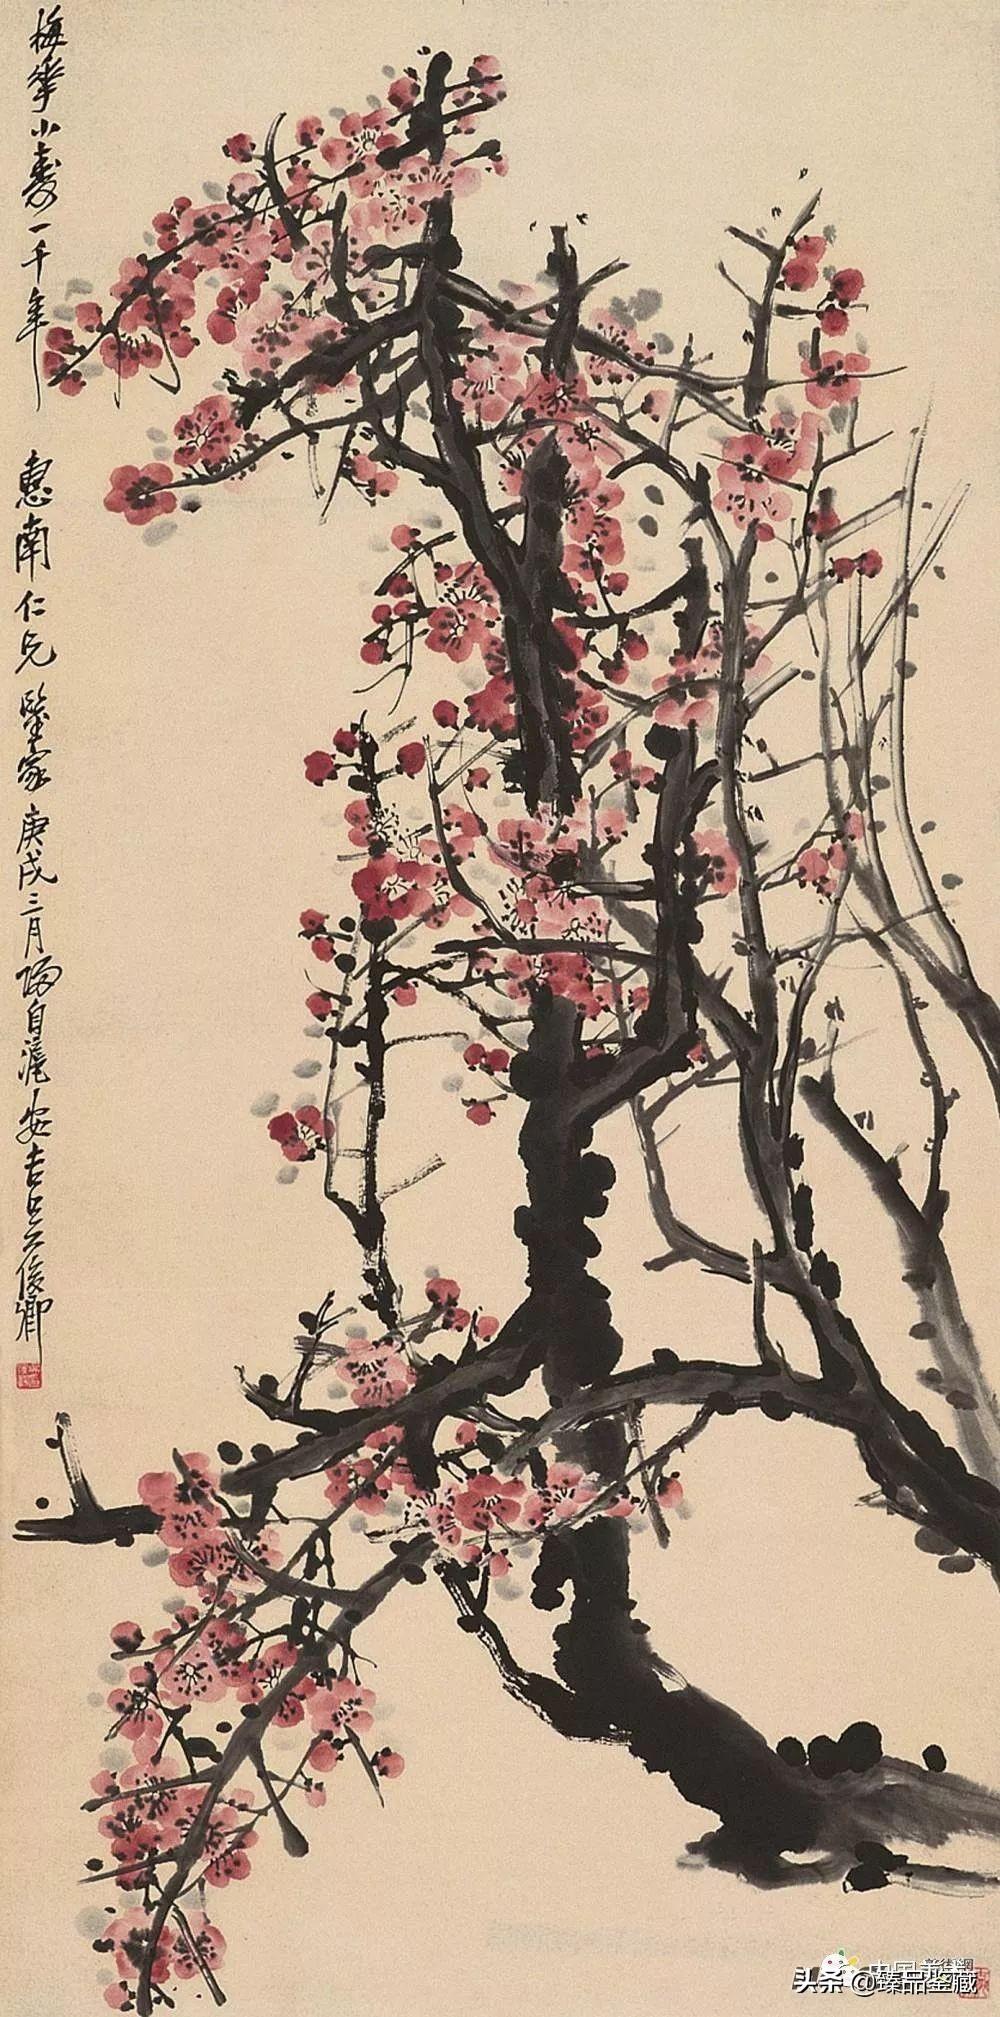 梅華小壽一千年
惠南仁兄鑒家庚戌三月歸自滬安吉吳俊卿
头条@臻品鉴藏